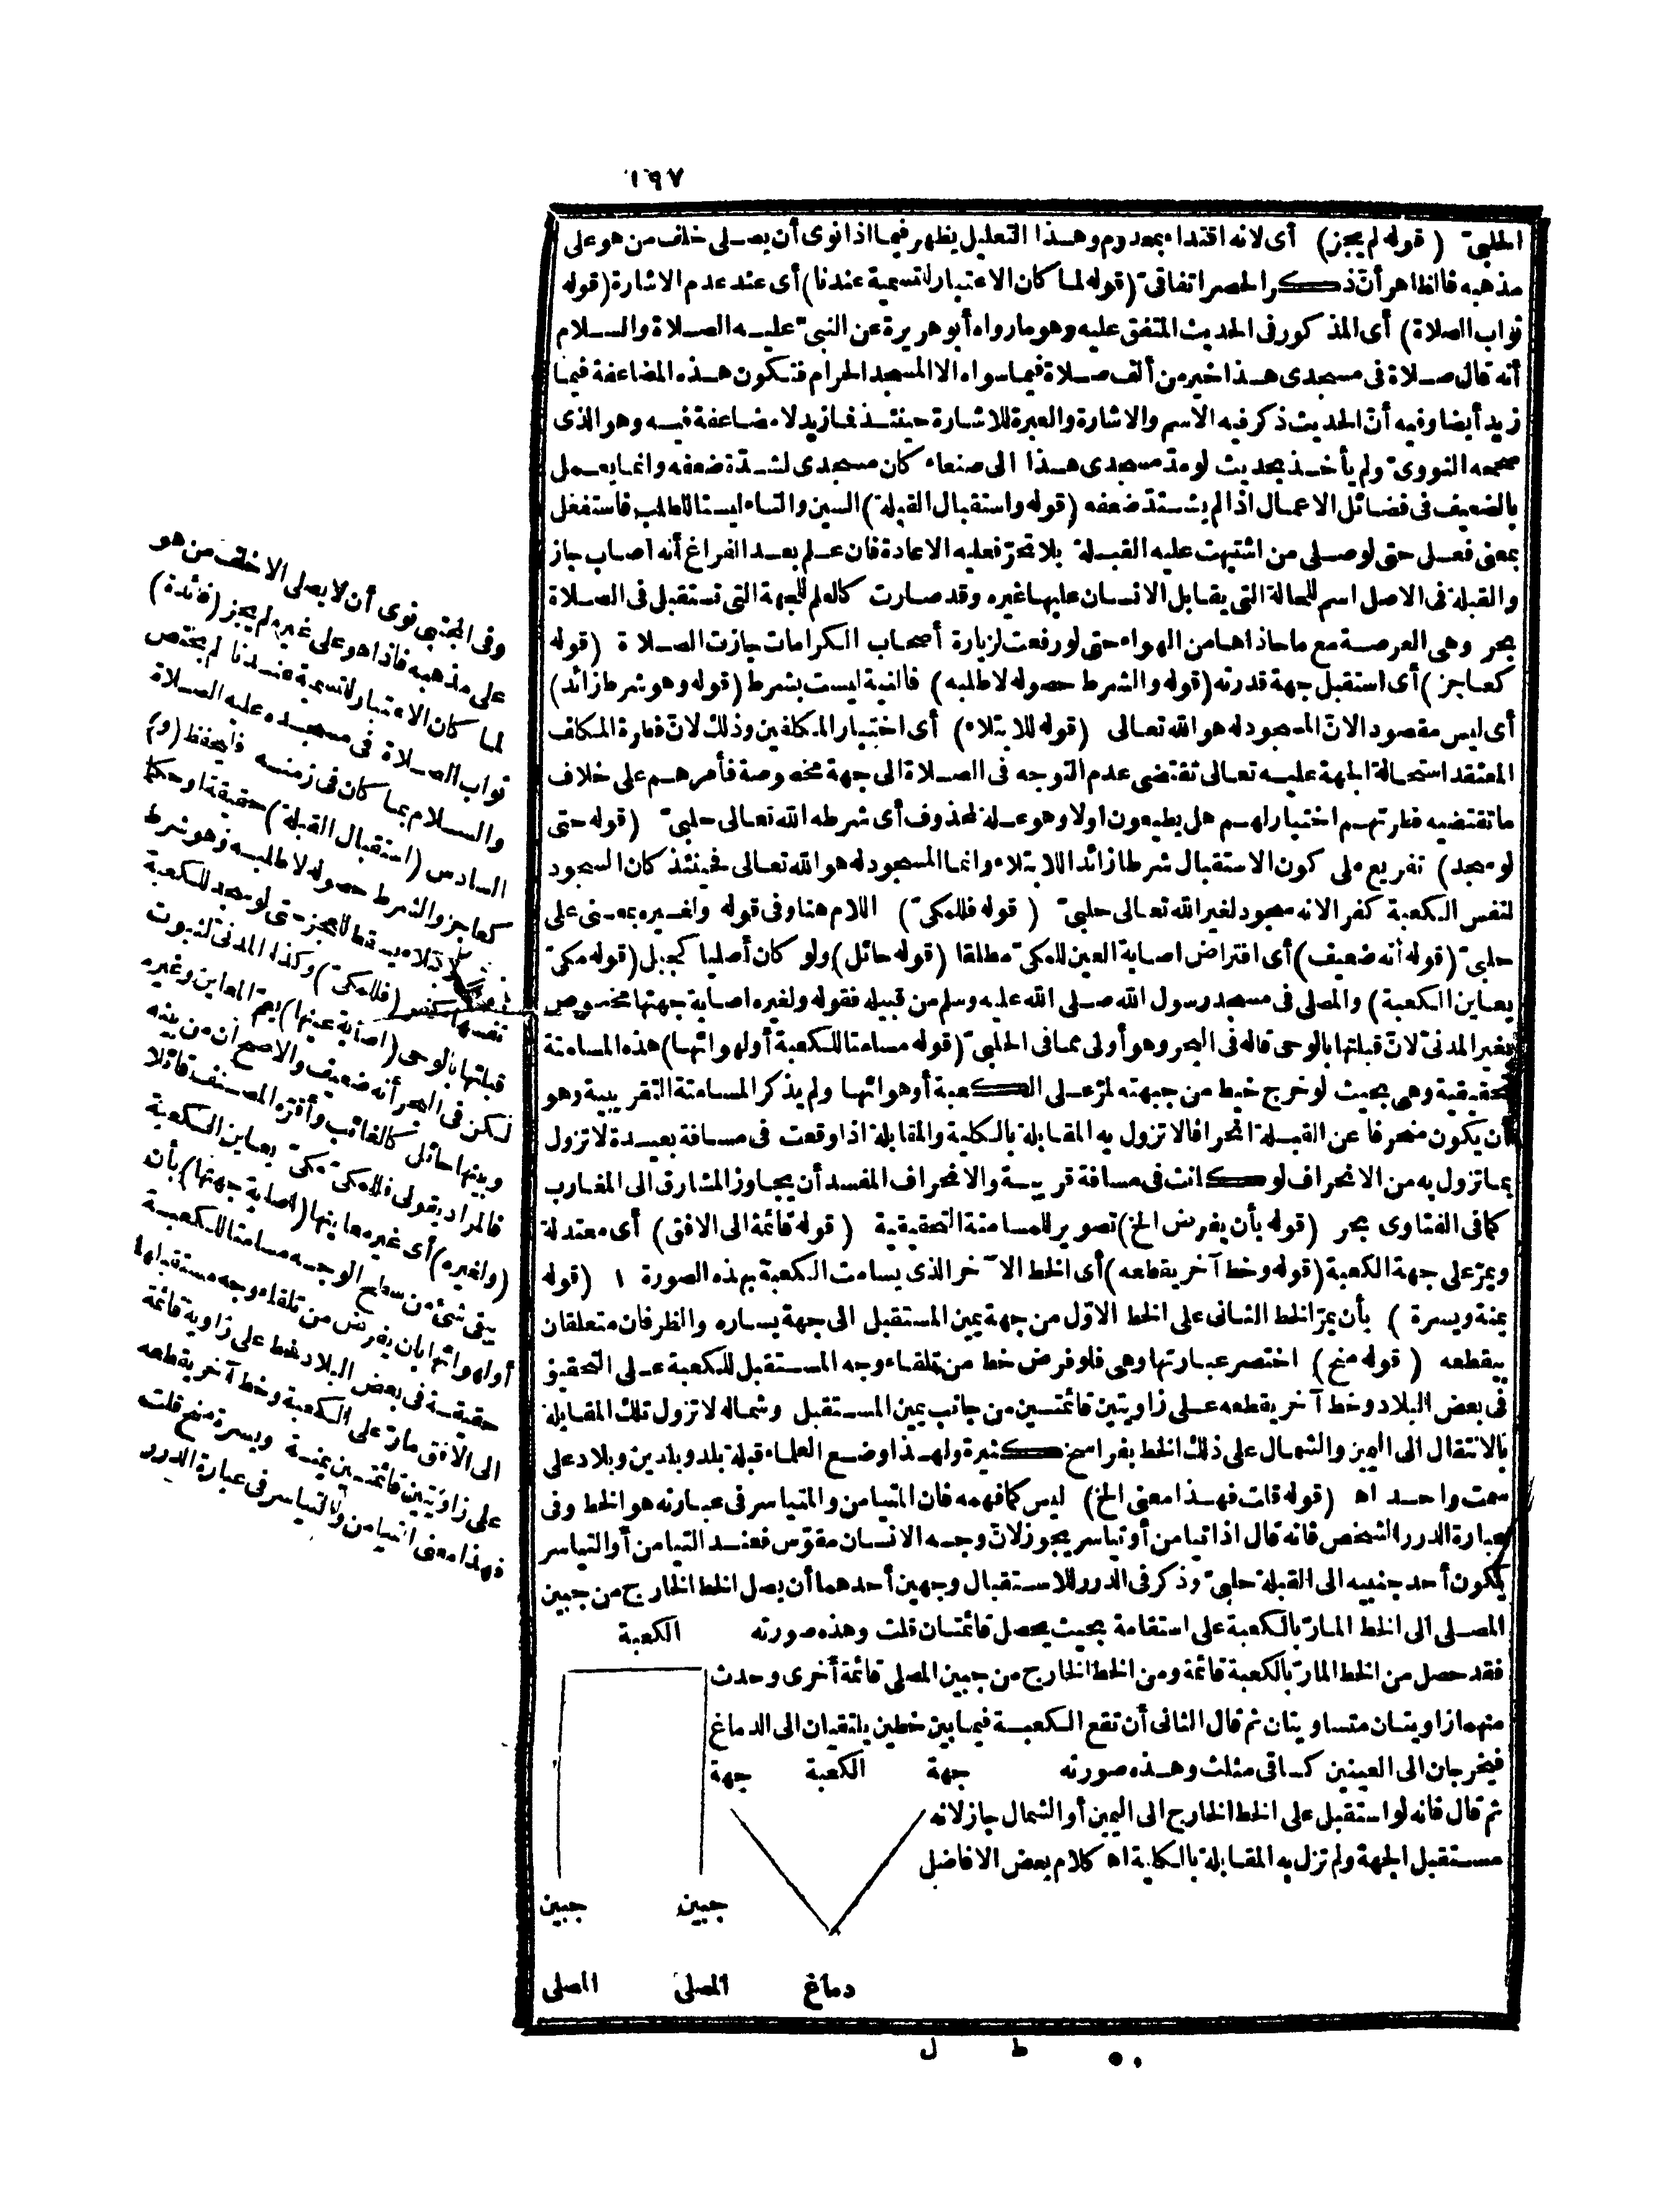 ١٩٧
الحلبىّ (قوله لم يجز) أى لانه اقتداء بمعدوم وهذا التعليل يظهر فيما اذا نوى أن يصلى خلف من هو على
مذهبه فالظاهر أنّ ذكر الحصر اتفاقىّ (قوله لما كان الاعتبار للتسمية عندنا) أى عند عدم الاشارة (قوله
ثواب الصلاة) أى المذكور فى الحديث المتفق عليه وهو مارواه أبو هريرة عن النبىّ عليه الصلاة والسلام
أنه قال صلاة فى مسجدى هذا خير من ألف صلاة فيما سواه الا المسجد الحرام فتكون هذه المضاعفة فيما
زيد أيضا وفيه أنّ الحديث ذكر فيه الاسم والاشارة والعبرة للاشارة حينئذ فما زيد لا مضاعفة فيه وهو الذى
صححه النووىّ ولم يأخذ بحديث لو مدّ مسجدى هذا الى صنعاء كان مسجدى لشدّة ضعفه وانما يعمل
بالضعيف فى فضائل الاعمال اذا لم يشتدّ ضعفه (قوله واستقبال القبلة) السين والتاء ليستا للطلب فاستفعل
بمعنى فعل حتى لو صلى من اشتبهت عليه القبلة بلا تحرّ فعليه الاعادة فان علم بعد الفراغ أنه أصاب جاز
والقبلة فى الاصل اسم للحالة التى يقابل الانسان عليها غيره وقد صارت كالعلم للجهة التى تستقبل فى الصلاة
بحر وهى العرصة مع ما حاذاها من الهواء حتى لو رفعت لزيارة أصحاب الكرامات جازت الصلاة (قوله
كعاجز) أى استقبل جهة قدرته (قوله والشرط حصوله لا طلبه) فالنية ليست بشرط (قوله وهو شرط زائد)
أى ليس مقصود الانّ المسجود له هو الله تعالى (قوله للابتلاء) أى اختبار المكلفين وذلك لانّ فطرة المكلف
المعتقد استحالة الجهة عليه تعالى تقتضى عدم التوجه فى الصلاة الى جهة مخصوصة فأمرهم على خلاف
ما تقتضيه فطرتهم اختبارا لهم هل يطيعون أولا وهو علة لمحذوف أى شرطه الله تعالى حلبىّ (قوله حتى
لو سجد) تفريع على كون الاستقبال شرطا زائدا للابتلاء وانما المسجود له هو الله تعالى فحينئذ كان السجود
لنفس الكعبة كفرا لانه سجود لغير الله تعالى حلبىّ (قوله فللمكىّ) اللام هنا وفى قوله ولغيره بمعنى على
حلبىّ (قوله أنه ضعيف) أى افتراض اصابة العين للمكىّ مطلقا (قوله حائل) ولو كان أصليا كجبل (قوله مكىّ
يعاين الكعبة) والمصلى فى مسجد رسول الله صلى الله عليه وسلم من قبيله فقوله ولغيره اصابة جهتها مخصوص
بغير المدنىّ لانّ قبلتها بالوحى قاله فى البحر وهو أولى مما فى الحلبىّ (قوله مسامتا للكعبة أولهوائها) هذه المسامتة
الحقيقية وهى بحيث لو خرج خيط من جبهته لمرّ على الكعبة أو هوائها ولم يذكر المسامتة التقريبية وهو
أن يكون منحرفا عن القبلة انحرافا لا تزول به المقابلة بالكلية والمقابلة اذا وقعت فى مسافة بعيدة لا تزول
بما تزول به من الانحراف لو كانت فى مسافة قريبة والانحراف المفسد أن يجاوز المشارق الى المغارب
كما فى الفتاوى بحر (قوله بأن يفرض الخ) تصوير للمسامتة التحقيقية (قوله قائمة الى الافق) أى معتدلة
ويمرّ على جهة الكعبة (قوله وخط آخر يقطعه) أى الخط الآخر الذى يسامت الكعبة بهذه الصورة ١ (قوله
يمنة ويسرة) بأن يمرّ الخط الثانى على الخط الاوّل من جهة يمين المستقبل الى جهة يساره والظرفان متعلقان
بيقطعه (قوله منح) اختصر عبارتها وهى فلو فرض خط من تلقاء وجه المستقبل للكعبة على التحقيق
فى بعض البلاد وخط آخر يقطعه على زاويتين قائمتين من جانب يمين المستقبل وشماله لا تزول تلك المقابلة
بالانتقال الى اليمين والشمال على ذلك الخط بفراسخ كثيرة ولهذا وضع العلماء قبلة بلد وبلدين وبلاد على
سمت واحد اه (قوله قلت فهذا معنى الخ) ليس كما فهمه فان التيامن والتياسر فى عبارته هو الخط وفى
عبارة الدرر الشخص فانه قال اذا تيامن أو تياسر يجوز لانّ وجه الانسان مقوّس فعند التيامن أو التياسر
يكون أحد جنبيه الى القبلة حلبىّ وذكر فى الدرر للاستقبال وجهين أحدهما أن يصل الخط الخارج من جبين
المصلى الى الخط المارّ بالكعبة على استقامة بحيث يحصل قائمتان قلت وهذه صورته الكعبة
فقد حصل من الخط المارّ بالكعبة قائمة ومن الخط الخارج من جبين المصلى قائمة أخرى وحدث
منهما زاويتان متساويتان ثم قال الثانى أن تقع الكعبة فيما بين خطين يلتقيان الى الدماغ
فيخرجان الى العينين كساقى مثلث وهذه صورته جهة الكعبة جهة
ثم قال فانه لو استقبل على الخط الخارج الى اليمين أو الشمال جاز لانه
مستقبل الجهة ولم تزل به المقابلة بالكلية اه كلام بعض الافاضل
جبين جبين
دماغ المصلى المصلى
٥٠ ط ل
وفى المجتبى نوى أن لا يصلى الا خلف من هو
على مذهبه فاذا هو على غيره لم يجز (فائدة)
لما كان الاعتبار للتسمية عندنا لم يختص
ثواب الصلاة فى مسجده عليه الصلاة
والسلام بما كان فى زمنه فليحفظ (و)
السادس (استقبال القبلة) حقيقة أو حكما
كعاجز والشرط حصوله لا طلبه وهو شرط
زائد للابتلاء يسقط للعجز حتى لو سجد للكعبة
نفسها كفر (فللمكىّ) وكذا المدنىّ لثبوت
قبلتها بالوحى (اصابة عينها) يعمّ المعاين وغيره
لكن فى البحر أنه ضعيف والاصح أن من بينه
وبينها حائل كالغائب وأقرّه المصنف قائلا
فالمراد بقولى فللمكىّ مكىّ يعاين الكعبة
(ولغيره) أى غير معاينها (اصابة جهتها) بأن
يبقى شئ من سطح الوجه مسامتا للكعبة
أولهوائها بان يفرض من تلقاء وجه مستقبلها
حقيقة فى بعض البلاد خط على زاوية قائمة
الى الافق مارّ على الكعبة وخط آخر يقطعه
على زاويتين قائمتين يمنة ويسرة منح قلت
فهذا معنى التيامن والتياسر فى عبارة الدرر